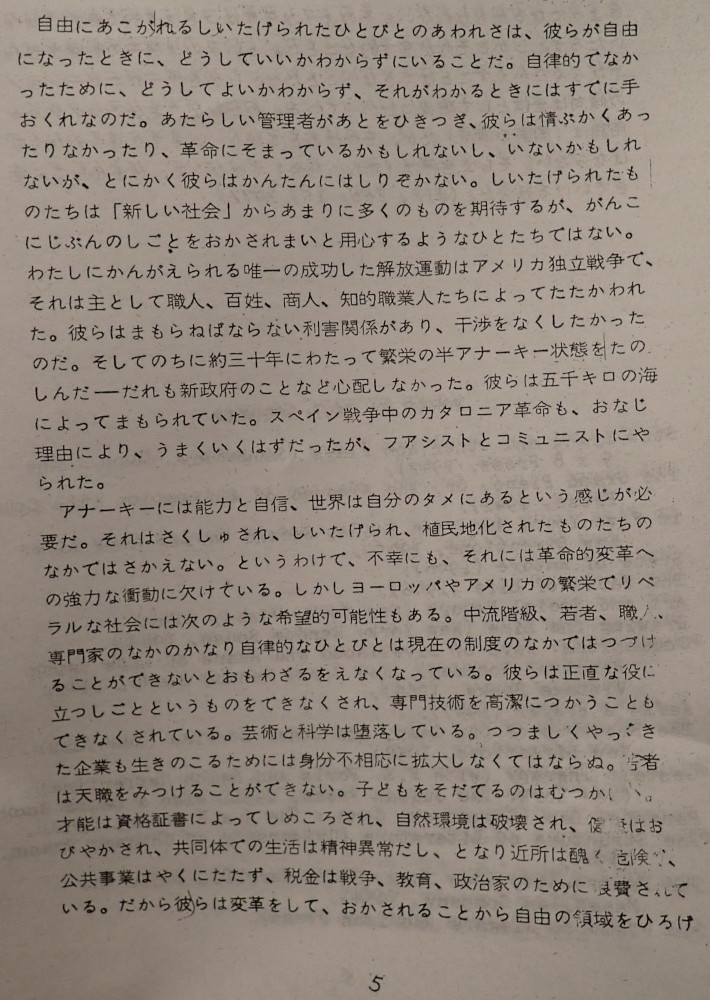 自由にあこがれるしいたげられたひとびとのあわれさは、彼らが自由
になったときに、どうしていいかわからずにいることだ。自律的でなか
ったために、どうしてよいかわからず、それがわかるときにはすでに手
おくれなのだ。あたらしい管理者があとをひきつぎ、彼らは情ぶかくあっ
たりなかったり、革命にそまっているかもしれないし、いないかもしれ
ないが、とにかく彼らはかんたんにはしりぞかない。しいたげられたも
のたちは「新しい社会」からあまりに多くのものを期待するが、がんこ
にじぶんのしごとをおかされまいと用心するようなひとたちではない。
わたしにかんがえられる唯一の成功した解放運動はアメリカ独立戦争で、
それは主として職人、百姓、商人、知的職業人たちによってたたかわれ
た。彼らはまもらねばならない利害関係があり、干渉をなくしたかった
のだ。そしてのちに約三十年にわたって繁栄の半アナーキー状態をたの
しんだ──だれも新政府のことなど心配しなかった。彼らは五千キロの海
によってまもられていた。スペイン戦争中のカタロニア革命も、おなじ
理由により、うまくいくはずだったが、フアシストとコミュニストにや
られた。
アナーキーには能力と自信、世界は自分のタメにあるという感じが必
要だ。それはさくしゅされ、しいたげられ、植民地化されたものたちの
なかではさかえない。というわけで、不幸にも、それには革命的変革へ
の強力な衝動に欠けている。しかしヨーロッパやアメリカの繁栄でリベ
ラルな社会には次のような希望的可能性もある。中流階級、若者、職人、
専門家のなかのかなり自律的なひとびとは現在の制度のなかではつづけ
ることができないとおもわざるをえなくなっている。彼らは正直な役に
立つしごとというものをできなくされ、専門技術を高潔につかうことも
できなくされている。芸術と科学は堕落している。つつましくやってき
た企業も生きのこるためには身分不相応に拡大しなくてはならぬ。若者
は天職をみつけることができない。子どもをそだてるのはむつかしい。
才能は資格証書によってしめころされ、自然環境は破壊され、健康はお
びやかされ、共同体での生活は精神異常だし、となり近所は醜く危険で、
公共事業はやくにたたず、税金は戦争、教育、政治家のために浪費されて
いる。だから彼らは変革をして、おかされることから自由の領域をひろげ
5